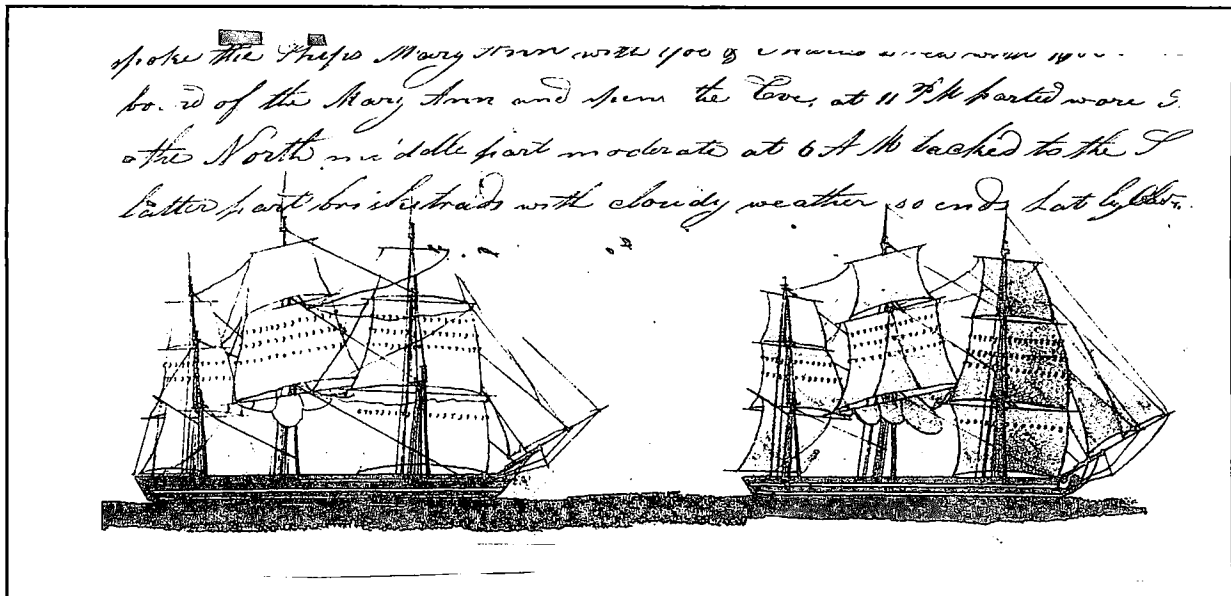 spoke the Ships Mary Ann with 400
bo rd of the Mary Ann and spent the Eve, at 11 PM parted wore
the North middle part moderate at 6 AM tacked to the S
latter part brisk trads with cloudy weather so ends Lat by Obs.